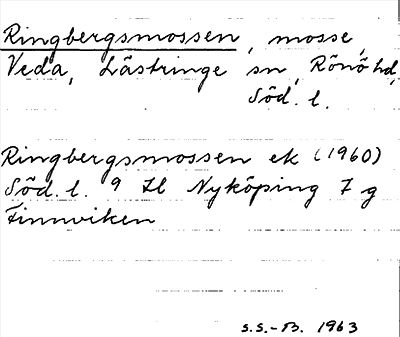 Ringbergsmossen, mosse,
Veda, Lästringe sn, Rönö hd,
Söd. l.
Ringbergsmossen ek (1960)
Söd. l. 9 H Nyköping 7 g
Finnviken
S.S.-B. 1963